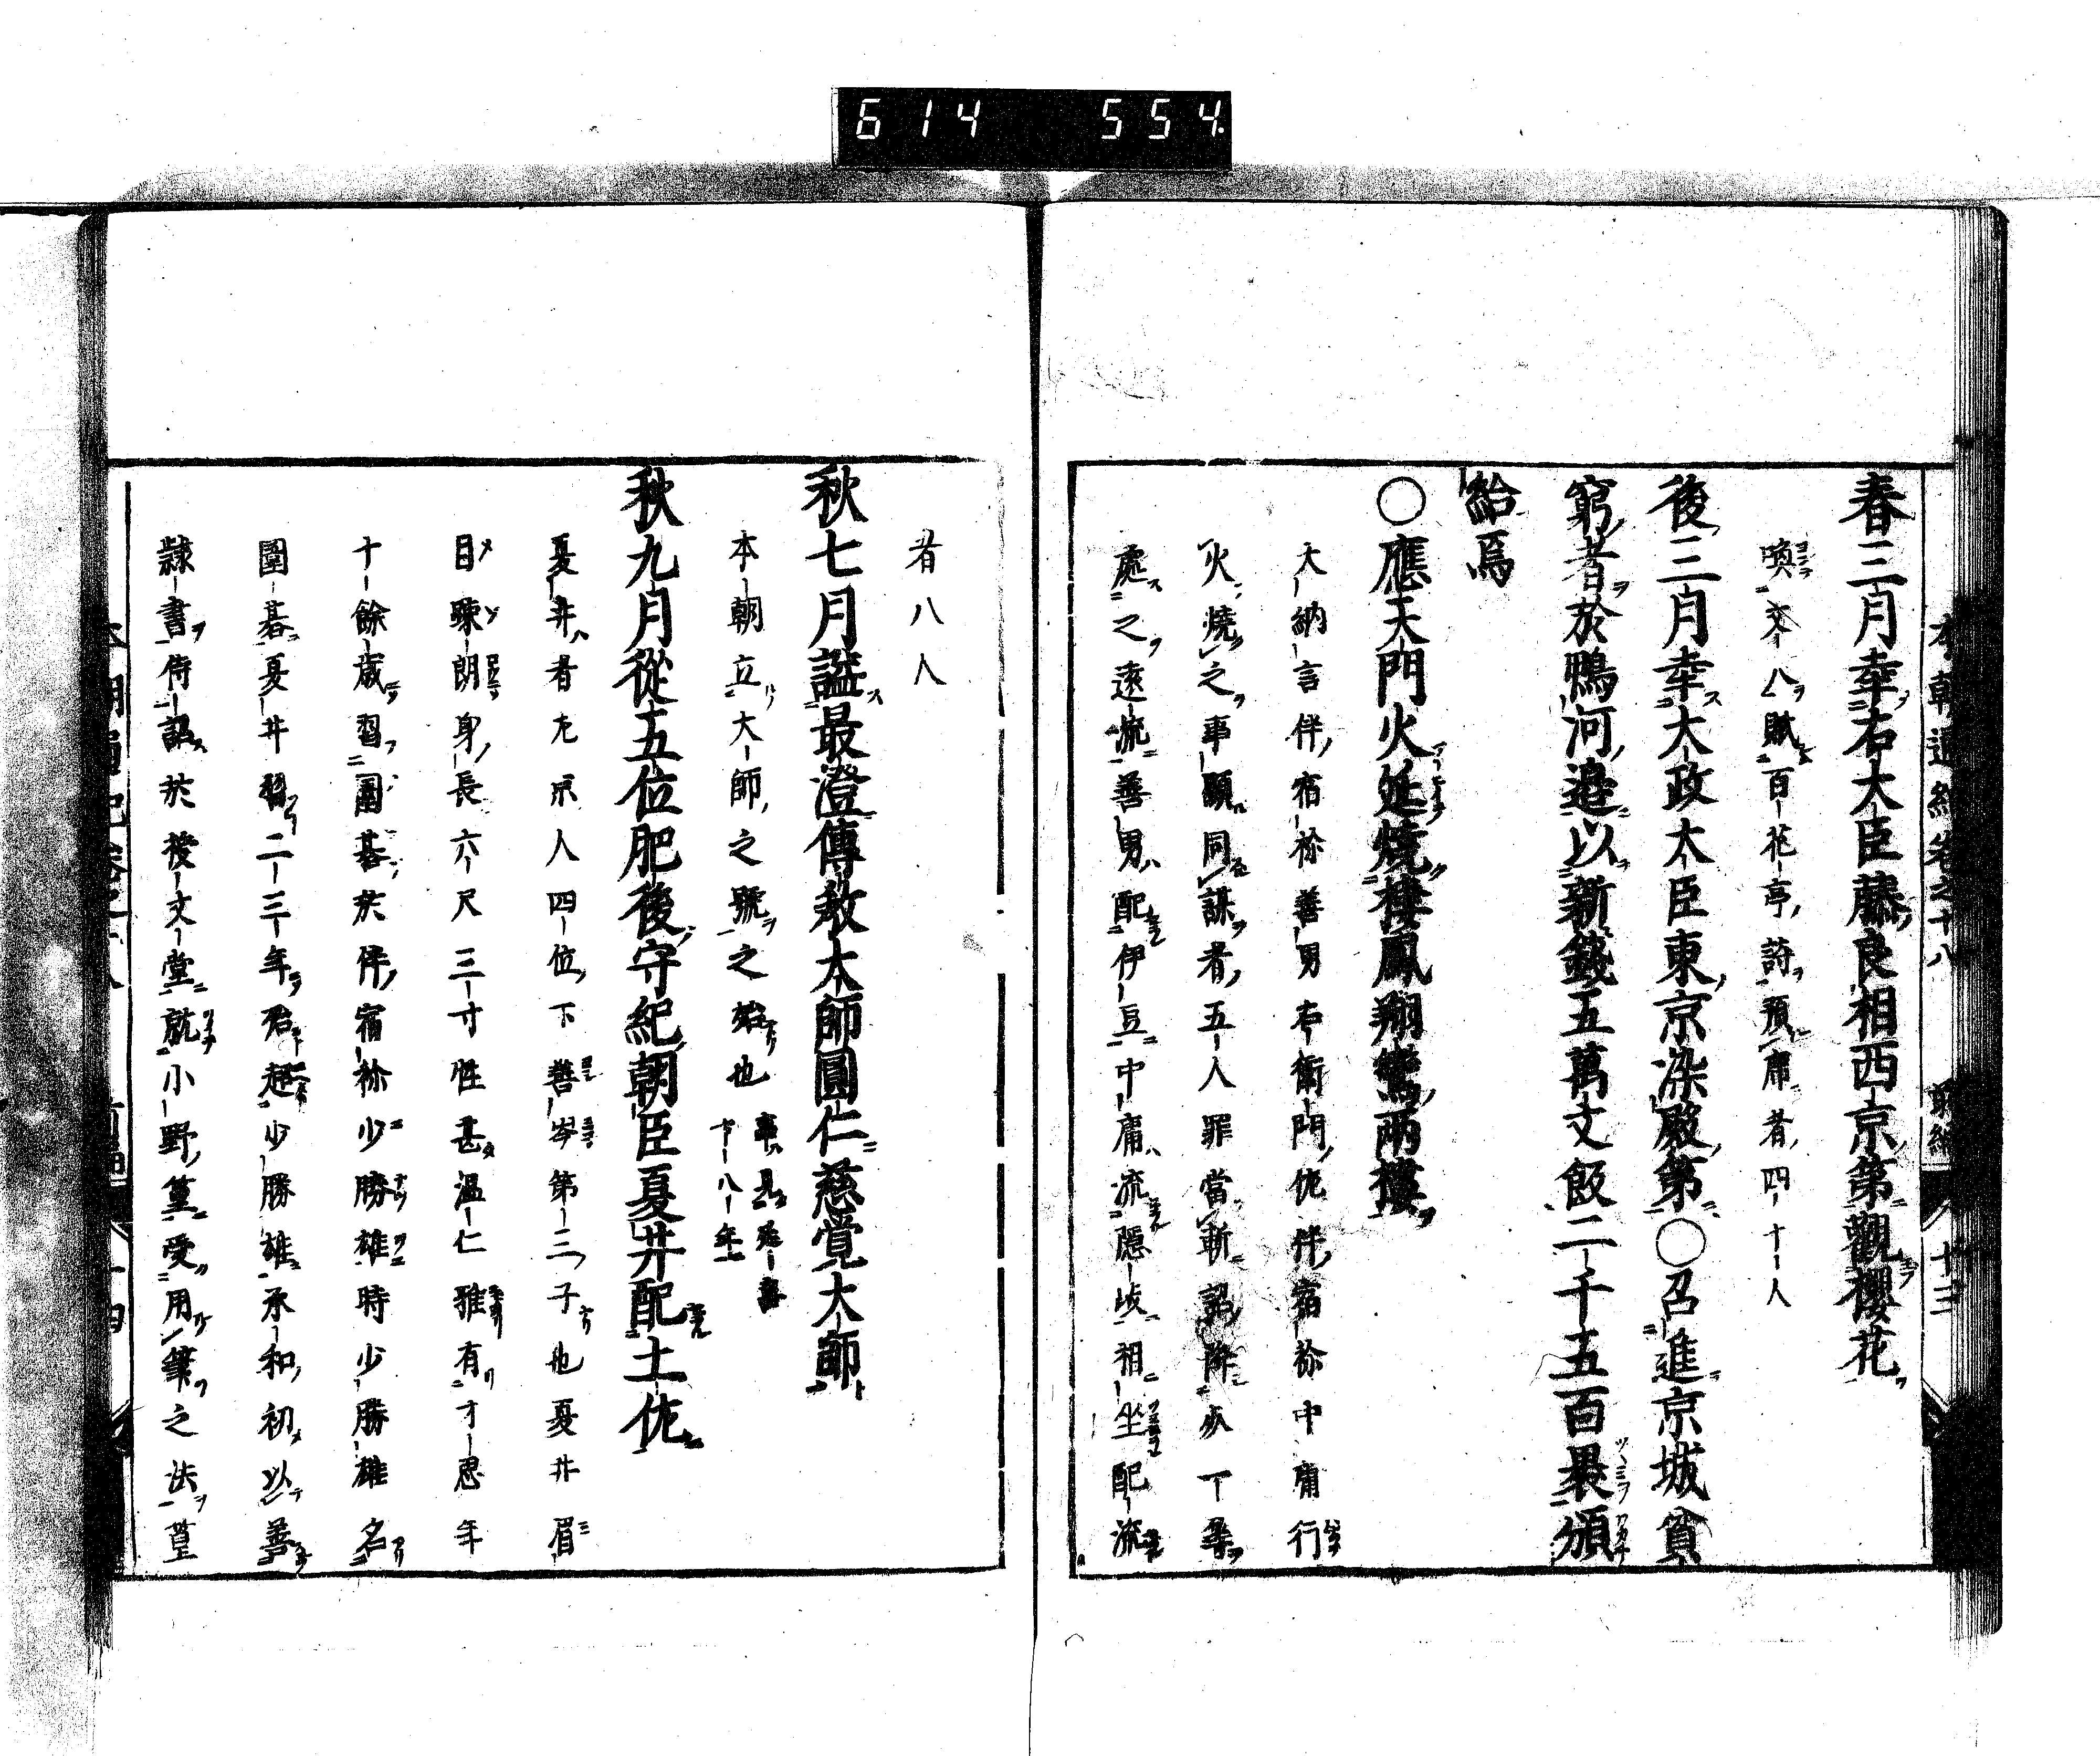 614 554.
本朝通紀卷之十八 前編 十三
春三月幸右大臣藤良相西京第觀櫻花
喚文人賦百花亭詩預席者四十人
後三月幸大政大臣東京染殿第○召進京城貧
窮者於鴨河邉以新錢五萬文飯二千五百裹頒
給焉
○應天門火延燒棲鳳翔鸞兩樓
大納言伴宿袮善男右衛門佐伴宿袮中庸行
火燒之事顯同謀者五人罪當斬詔降死一等
處之遠流善男配伊豆中庸流隱岐相坐配流
者八人
秋七月謚最澄傳教大師圓仁慈覚大師
本朝立大師之號之始也
事見
十八年
秋九月從五位肥後守紀朝臣夏井配土佐
夏井者左京人四位下善岑第三子也夏井眉
目疎朗身長六尺三寸性甚温仁雅有才思年
十餘歳習圍碁於伴宿袮少勝雄時少勝雄名
圍碁夏井習二三年殆超少勝雄承和初以善
隷書侍詔於授文堂就小野篁受用筆之法篁
本朝通紀卷之十八 前編 十四